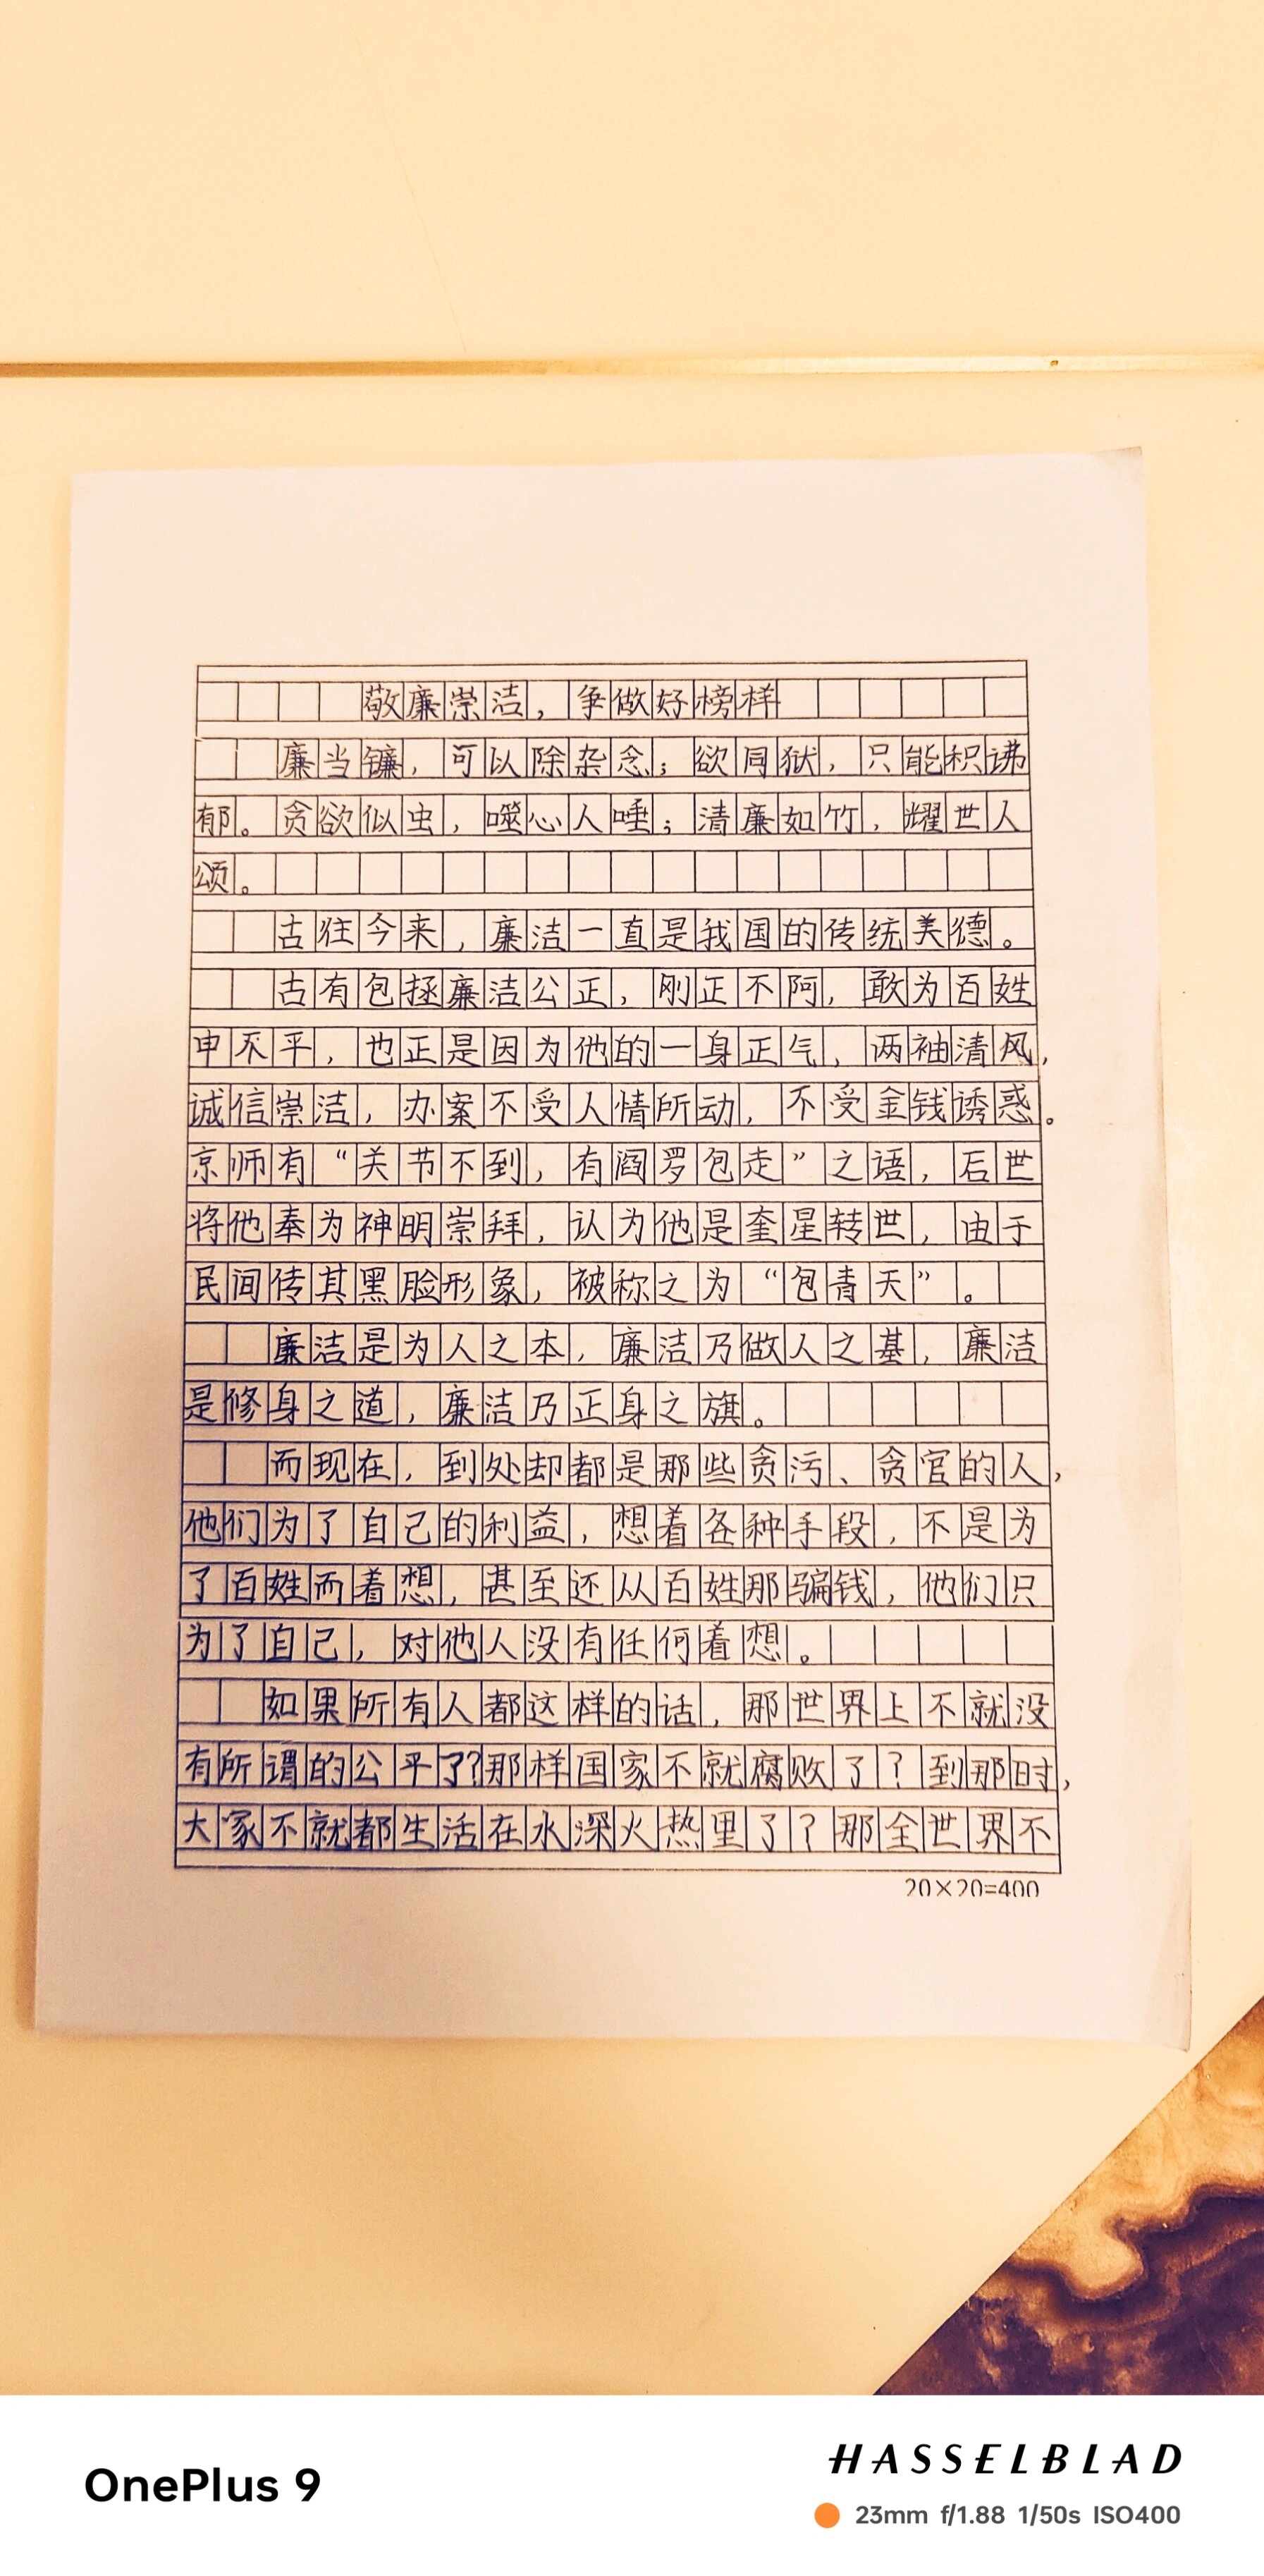 敬廉崇洁，争做好榜样
廉当镰，可以除杂念；欲同狱，只能积
郁。贪欲似虫，噬心人唾；清廉如竹，耀世人
颂。
古往今来，廉洁一直是我国的传统美德。
古有包拯廉洁公正，刚正不阿，敢为百姓
申不平，也正是因为他的一身正气，两袖清风，
诚信崇洁，办案不受人情所动，不受金钱诱惑。
京师有“关节不到，有阎罗包走”之语，后世
将他奉为神明崇拜，认为他是奎星转世，由于
民间传其黑脸形象，被称之为“包青天”。
廉洁是为人之本，廉洁乃做人之基，廉洁
是修身之道，廉洁乃正身之旗。
而现在，到处却都是那些贪污、贪官的人，
他们为了自己的利益，想着各种手段，不是为
了百姓而着想，甚至还从百姓那骗钱，他们只
为了自己，对他人没有任何着想。
如果所有人都这样的话，那世界上不就没
有所谓的公平了？那样国家不就腐败了？到那时，
大家不就都生活在水深火热里了？那全世界不
20×20=400
OnePlus 9
HASSELBLAD
23mm f/1.88 1/50s ISO400